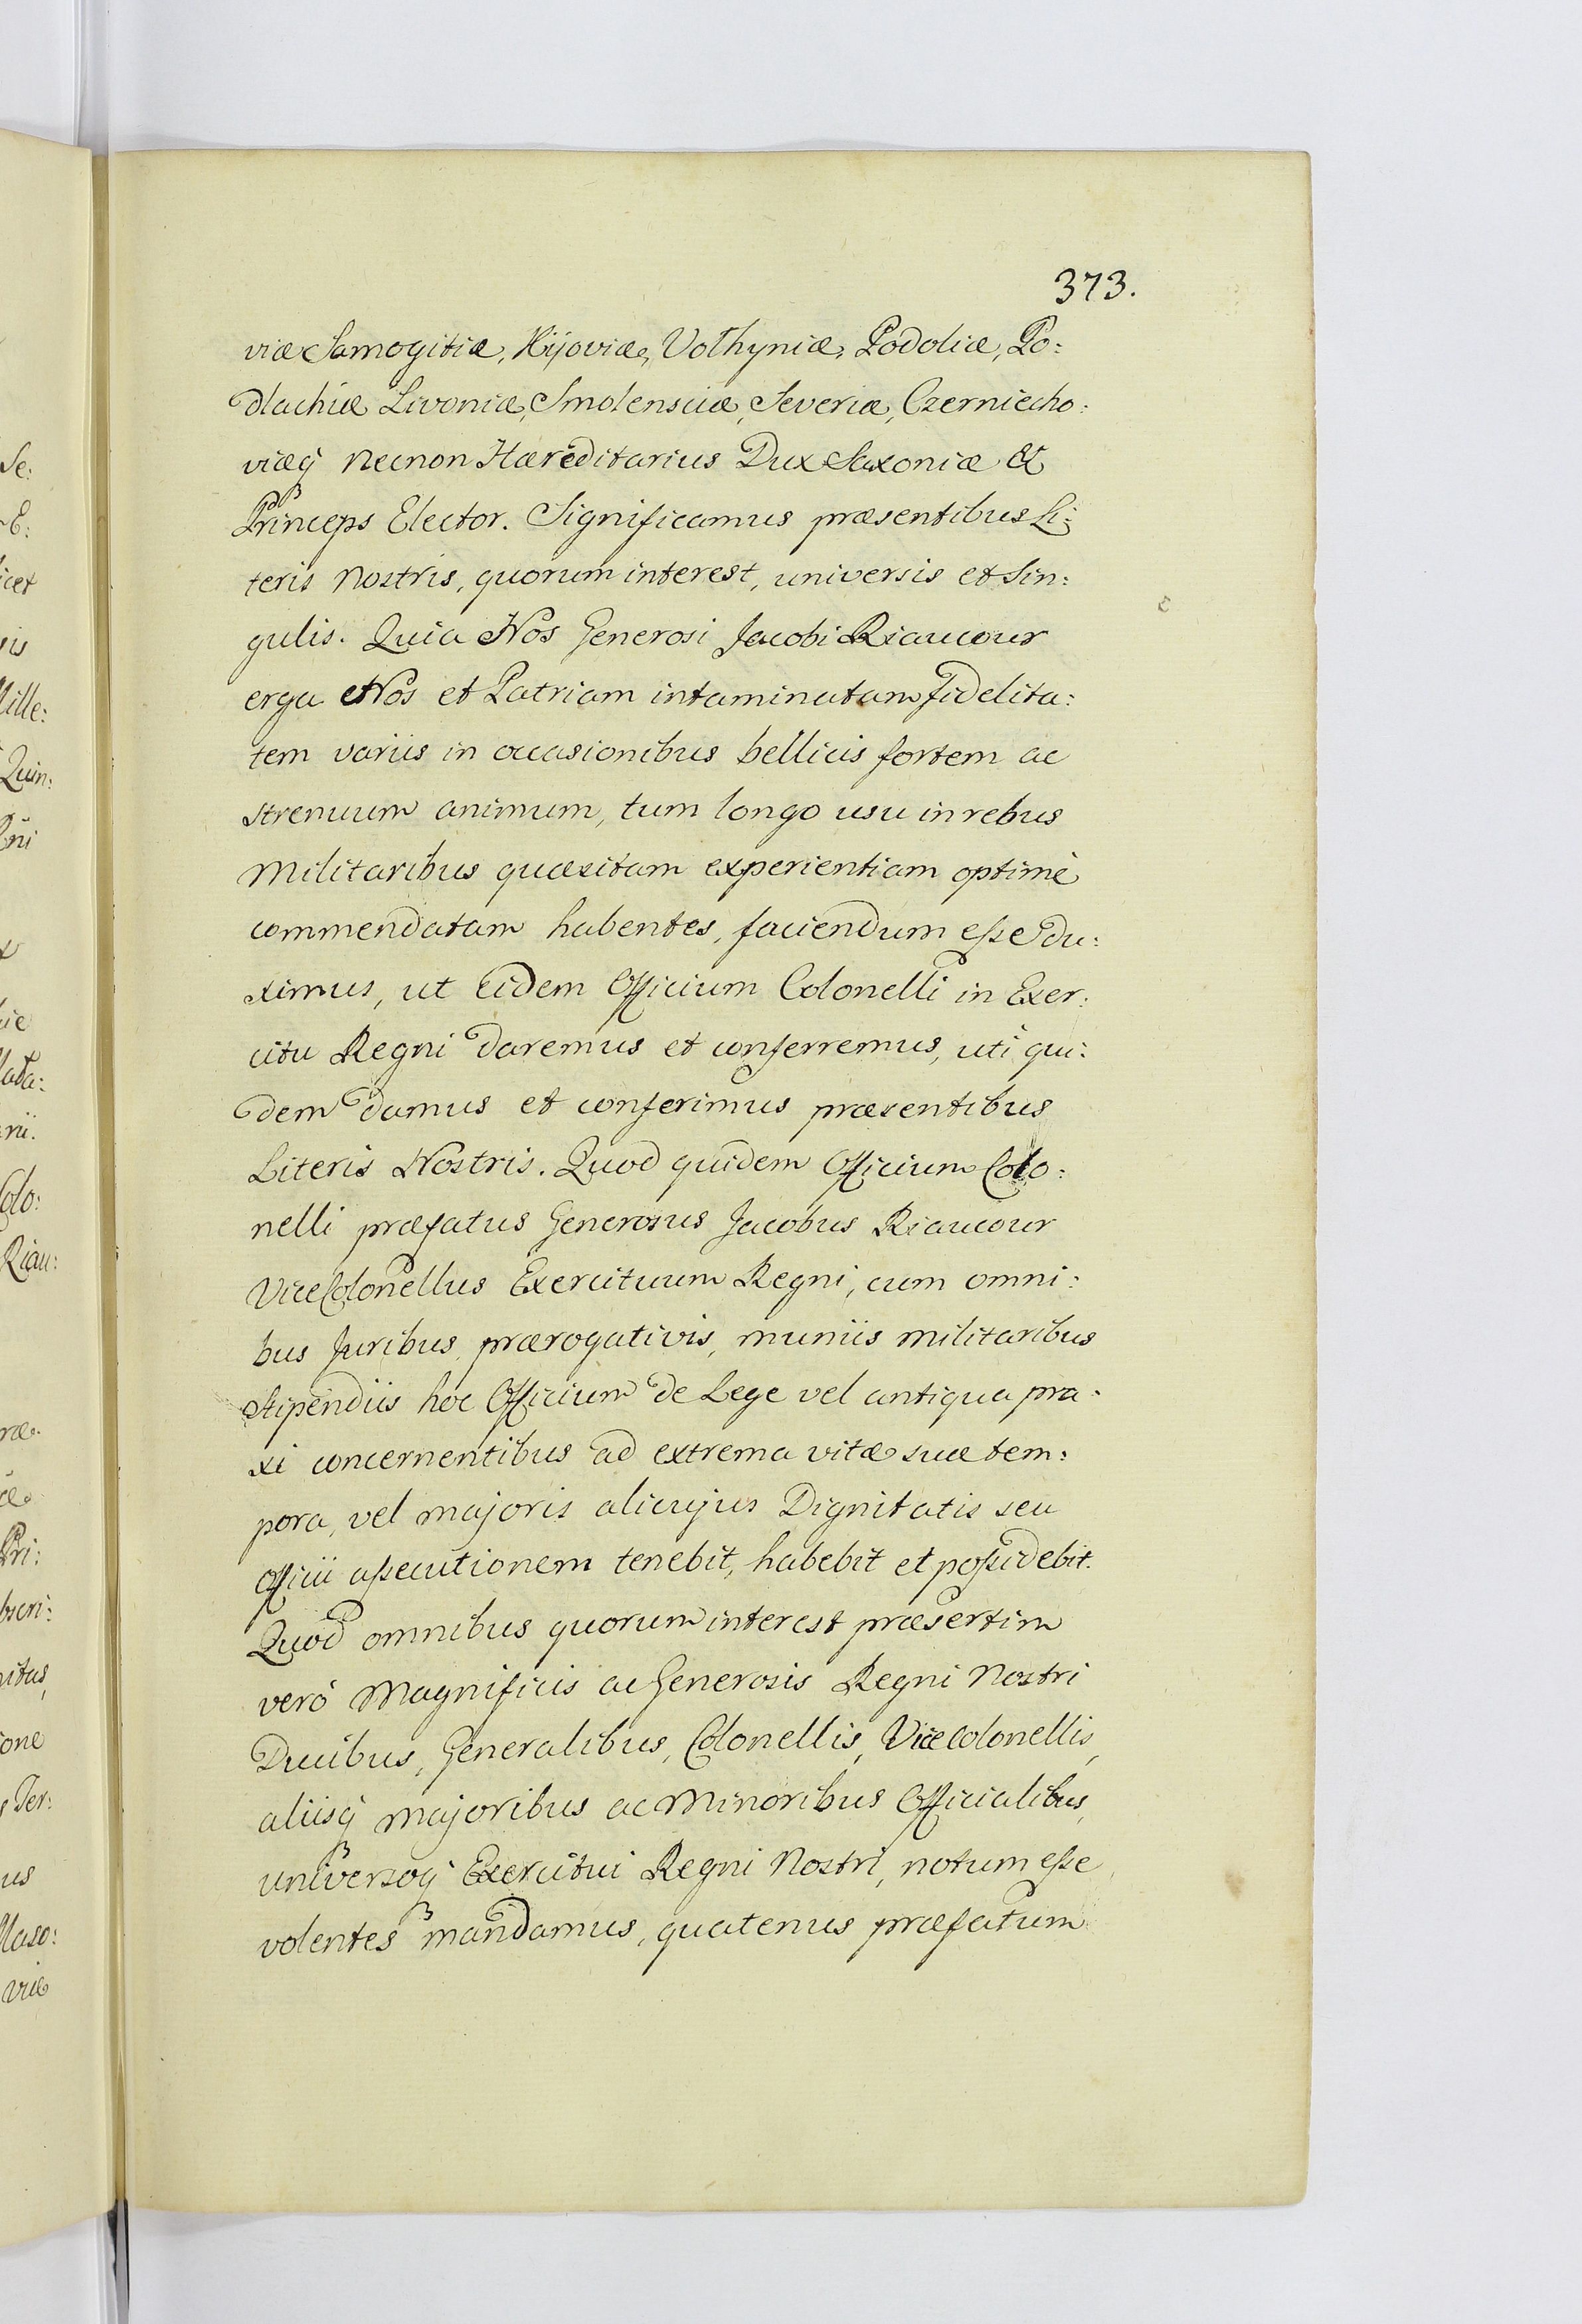 373.
viæ Samogitiæ, Kijoviæ, Volhyniæ, Podoliæ, Po:
dlachiæ Livoniæ, Smolensciæ, Severiæ, Czerniecho:
viæq́ necnon Hæreditarius Dux Saxoniæ et
Princeps Elector. Significamus præsentibus Li:
teris Nostris, quorum interest, universis et Sin:
gulis. Quia Nos Generosi Jacobi Riaucour
erga Nos et Patriam intaminatam fidelita:
tem variis in occasionibus bellicis fortem ac
strenuum animum, tum longo usu in rebus
Militaribus quæsitam experientiam optimè
commendatam habentes, faciendum eſse du:
ximus, ut Eidem Officium Colonelli in Exer:
citu Regni daremus et conferremus, uti qui:
dem damus et conferimus præsentibus
Literis Nostris. Quod quidem Officium Colo:
nelli præfatus Generosus Jacobus Riaucour
ViceColonellus Exercituum Regni, cum omni:
bus Juribus, prærogativis, muniis militaribus
Stipendiis hoc Officium de Lege vel antiqua pra:
xi concernentibus ad extrema vitæ suæ tem:
pora, vel majoris alicujus Dignitatis seu
Officii aſsecutionem tenebit, habebit et poſsidebit.
Quod omnibus quorum interest præsertim
verò Magnificis ac Generosis Regni Nostri
Ducibus, Generalibus, Colonellis, ViceColonellis,
aliisq́ Majoribus ac Minoribus Officialibus,
universoq́ Exercitui Regni Nostri, notum eſse
volentes mandamus, quatenus præfatum
Se:
E:
icet
sis
Mille:
Quin:
Colo:
Riau:
Pri:
bscri:
nitus,
ione
Ter:
us
Maso:
viæ